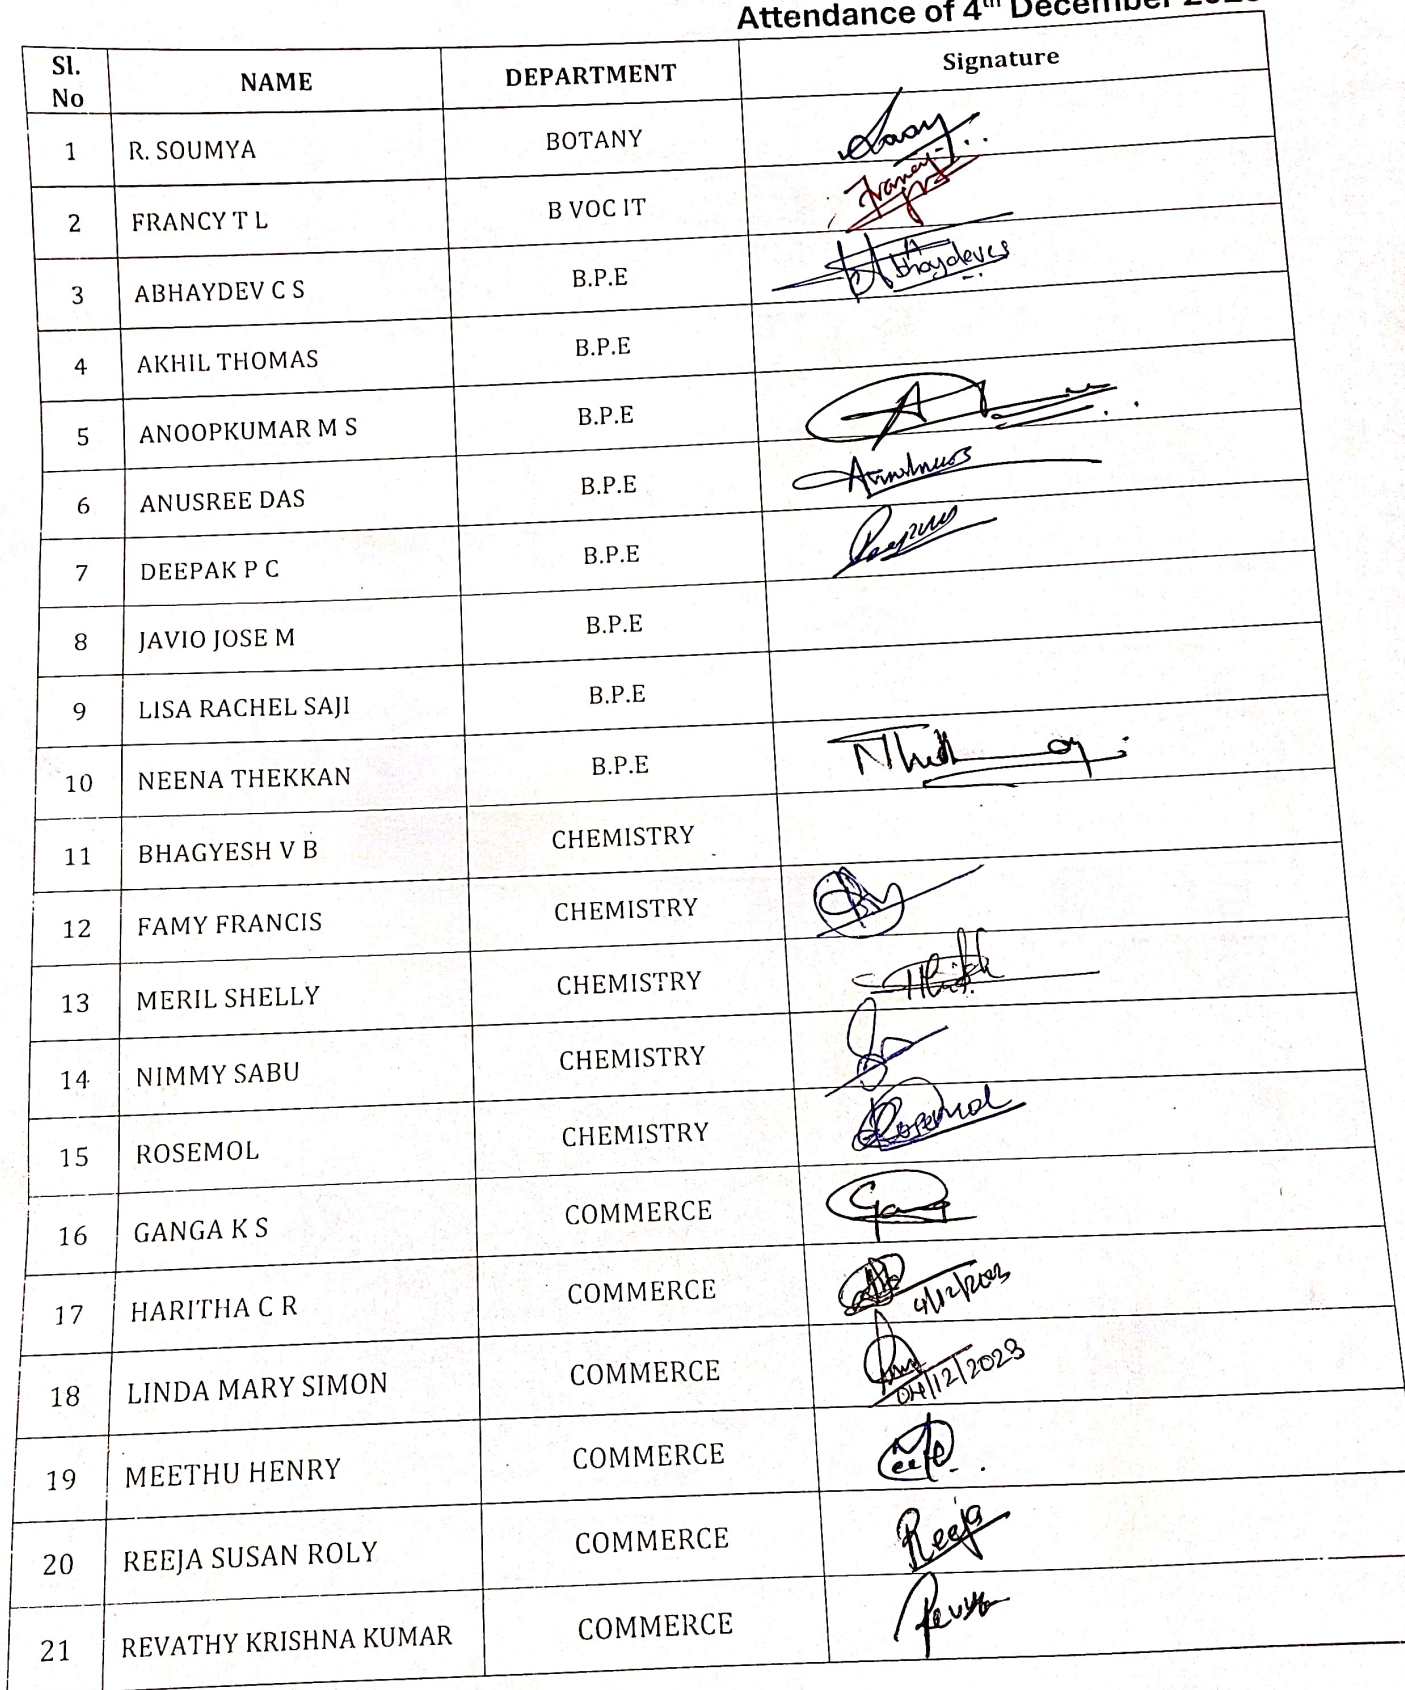 Attendance of 4th December 2023
Sl. No NAME DEPARTMENT Signature
1 R. SOUMYA BOTANY
2 FRANCY T L B VOC IT Francy
3 ABHAYDEV C S B.P.E Abhaydevcs
4 AKHIL THOMAS B.P.E
5 ANOOPKUMAR M S B.P.E
6 ANUSREE DAS B.P.E
7 DEEPAK P C B.P.E
8 JAVIO JOSE M B.P.E
9 LISA RACHEL SAJI B.P.E
10 NEENA THEKKAN B.P.E
11 BHAGYESH V B CHEMISTRY
12 FAMY FRANCIS CHEMISTRY
13 MERIL SHELLY CHEMISTRY
14 NIMMY SABU CHEMISTRY
15 ROSEMOL CHEMISTRY Rosemol
16 GANGA K S COMMERCE
17 HARITHA C R COMMERCE 4/12/2023
18 LINDA MARY SIMON COMMERCE 04/12/2023
19 MEETHU HENRY COMMERCE
20 REEJA SUSAN ROLY COMMERCE Reeja
21 REVATHY KRISHNA KUMAR COMMERCE